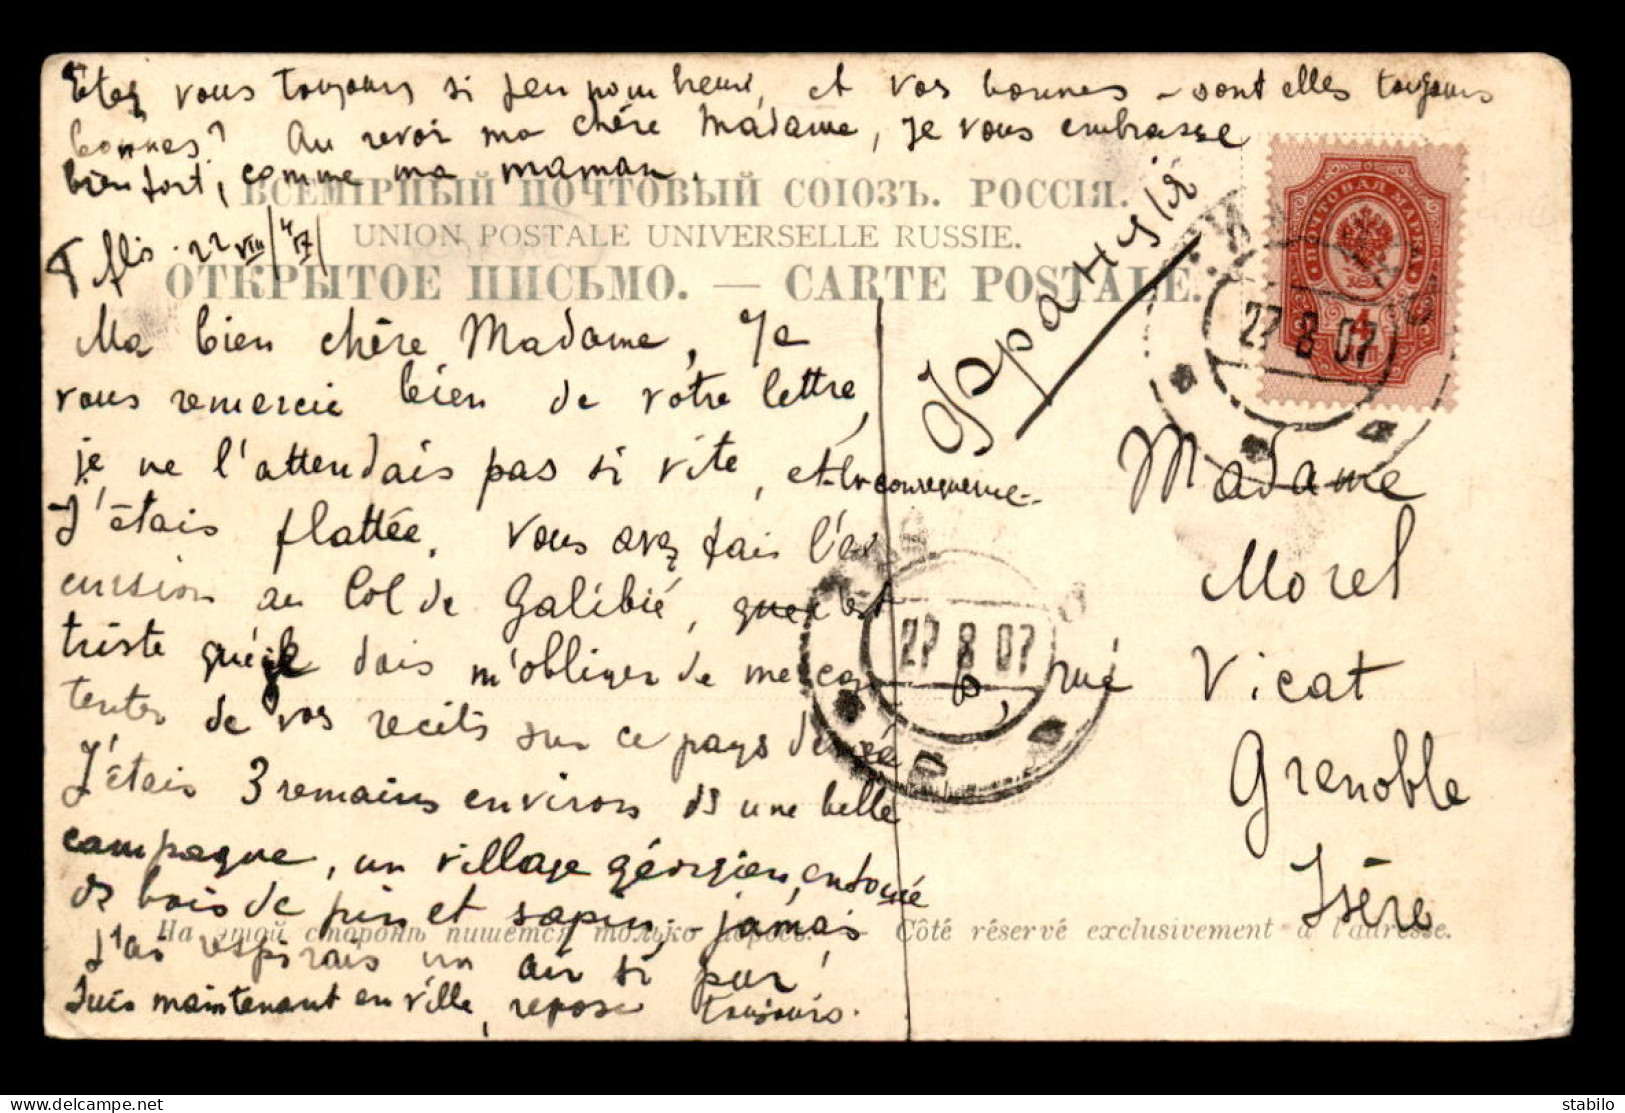 Etez vous toujours si peu pour heure, et vos bonnes - sont elles toujours
bonnes? Au revoir ma chère Madame, je vous embrasse
bien fort, comme ma maman.
ВСЕМІРНЫЙ ПОЧТОВЫЙ СОЮЗЪ. РОССІЯ.
UNION POSTALE UNIVERSELLE RUSSIE.
ОТКРЫТОЕ ПИСЬМО. — CARTE POSTALE.
Tiflis. 22 VIII
Франція
ПОЧТОВАЯ МАРКА
4
27 8 07
Ma bien chère Madame, Je
vous remercie bien de votre lettre,
je ne l'attendais pas si vite, et
J'étais flattée. Vous avez fais l'ex
cursion au Col de Galibié,
triste que je dois m'obliger de me con
tenter de vos recits sur ce pays
J'étais 3 semains environs ds une belle
campagne, un village géorgien, entouré
ds bois de pin et sapin - jamais
j'ai respirais un air si pur!
Suis maintenant en ville, repose toujours.
27 8 07
Madame
Morel
8, rue Vicat
Grenoble
Isère
На этой сторонѣ пишется только адресъ. — Côté réservé exclusivement à l'adresse.
stabilo www.delcampe.net